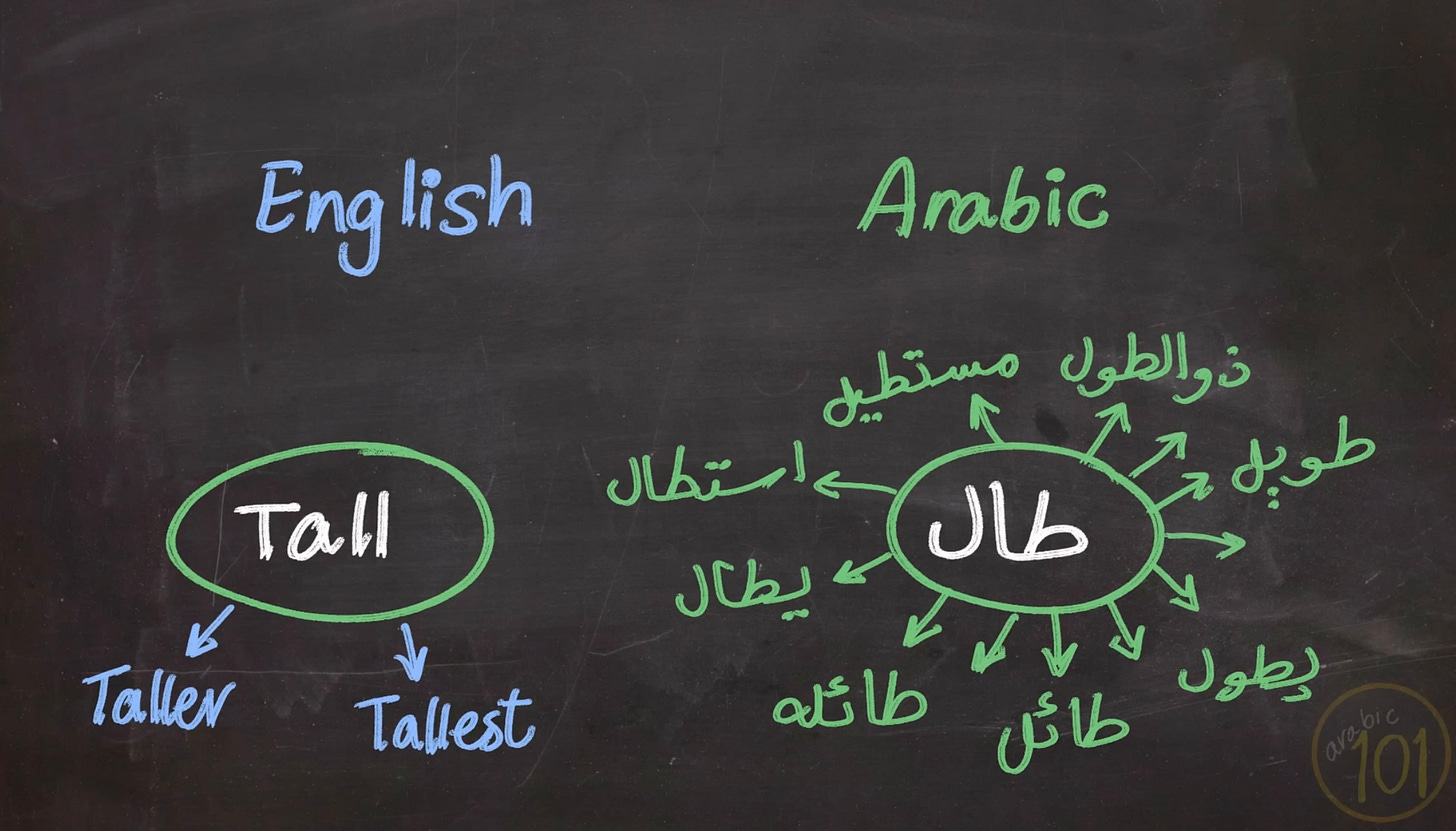 English
Arabic
Tall
Taller
Tallest
طال
ذو الطول
مستطيل
طويل
استطال
يطال
طائله
طائل
يطول
arabic
101